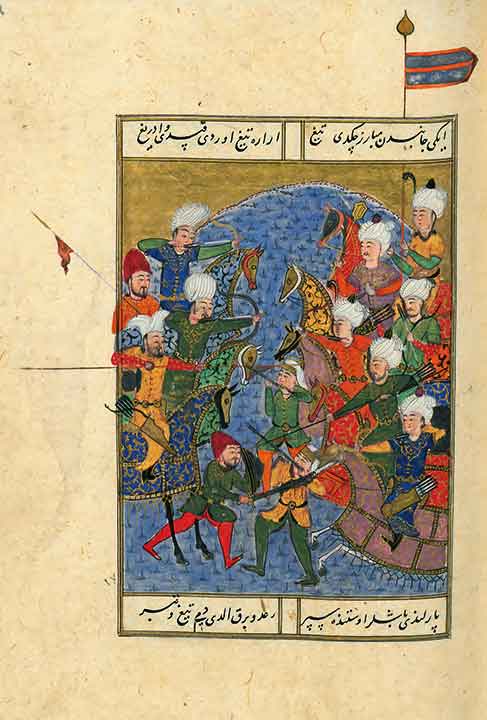 ایکی جانبدن مبارز چکدی تیغ
ار اره تیغ اوردی دریغ
پارلندی باشلر اوستنده سپر
رعد و برق الدی دم تیغ و تبر